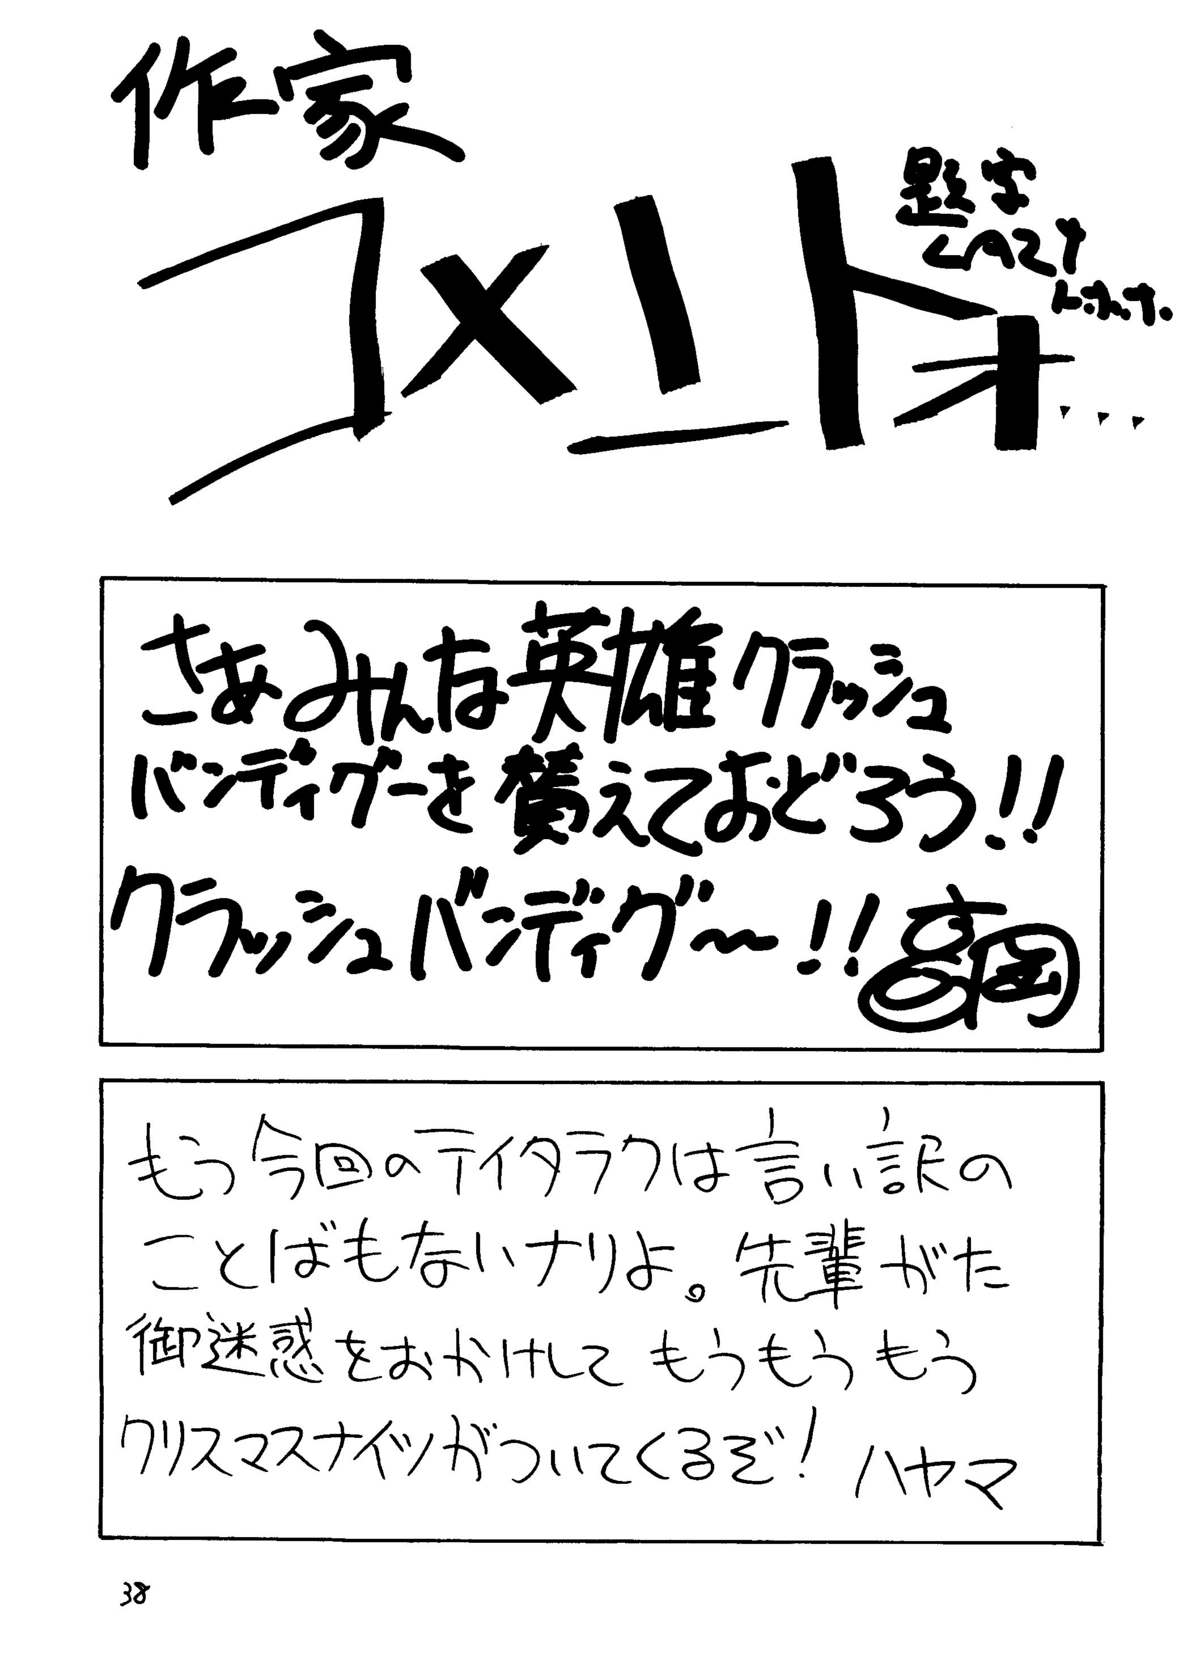 作家
コメント
題字
LAZY
トホホ。
さあみんな英雄クラッシュ
バンディグーを賛えておどろう!!
クラッシュバンディグ〜!!
高岡
もう今回のテイタラクは言い訳の
ことばもないナリよ。先輩がた
御迷惑をおかけしてもうもうもう
クリスマスナイツがついてくるぞ!
ハヤマ
38